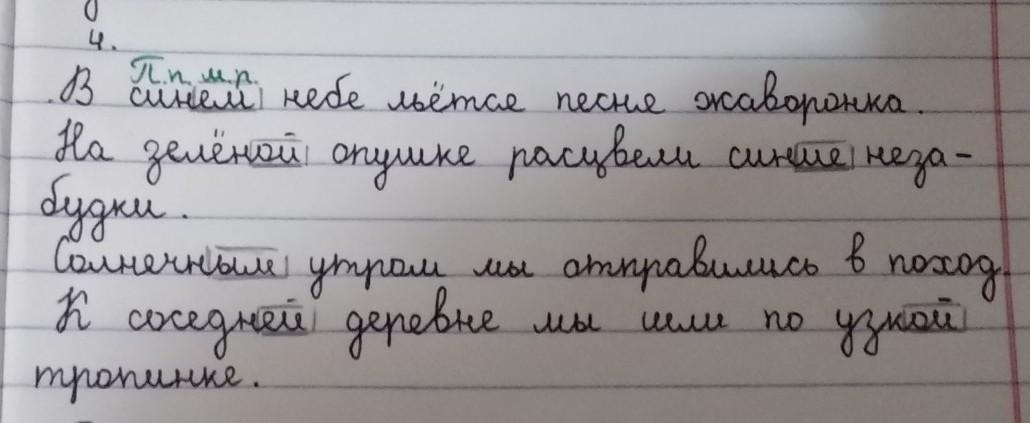 4.
П.п. м.р.
В синем небе льётся песня жаворонка.
На зелёной опушке расцвели синие неза-
будки.
Солнечным утром мы отправились в поход.
К соседней деревне мы шли по узкой
тропинке.